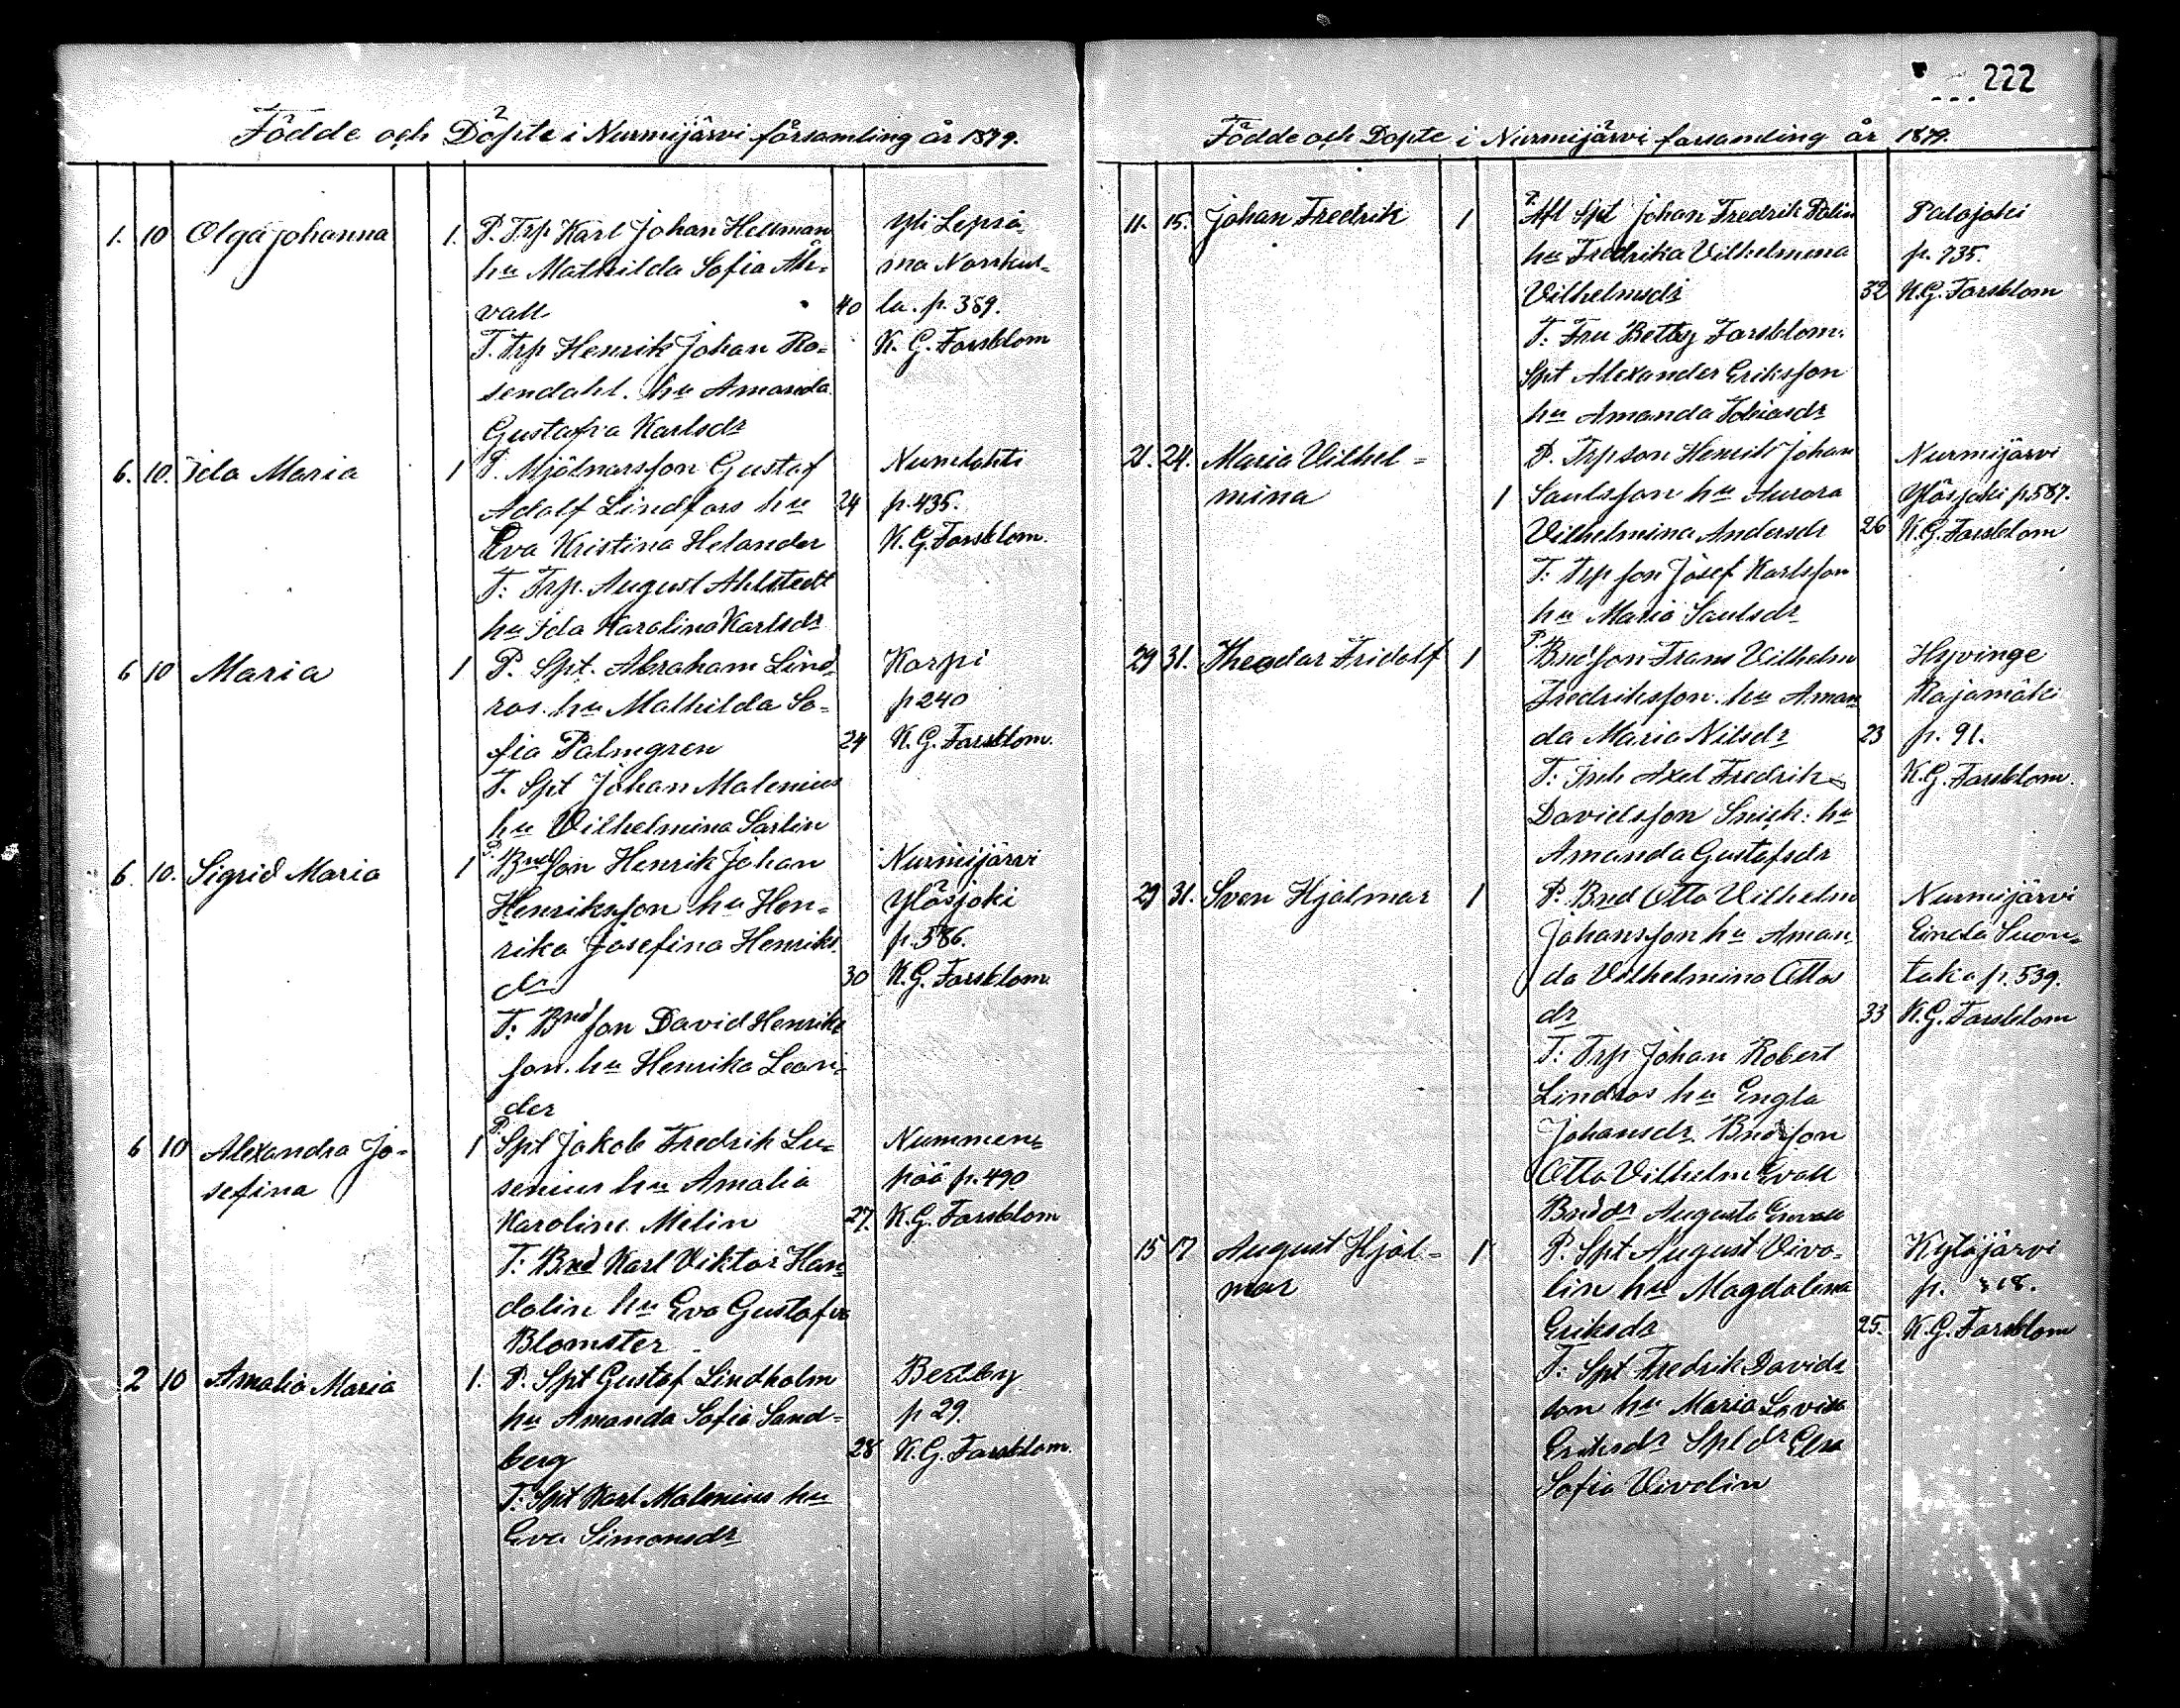 222
Födde och Döpte i Nurmijärvi församling år 1879.
1. 10 Olga Johanna 1. P. Trp Karl Johan Hellman Yli Lepsä-
hu Mathilda Sofia Åh- ma Norrkul-
vall 40 la. p. 389.
T. Trp Henrik Johan Ro- K. G. Forsblom
sendahl. hu Amanda
Gustafva Karlsdr
6. 10. Ida Maria 1 P. Mjölnarsson Gustaf Numlahti
Adolf Lindfors hu 24 p. 435.
Eva Kristina Helander K. G. Forsblom.
T: Trp. August Ahlstedt
hu Ida Karolina Karlsdr
6 10 Maria 1 P. Spt. Abraham Lind- Korpi
ros. hu Mathilda So- p 240
fia Palmgren 24 K. G. Forsblom.
T. Spt Johan Malenius
hu Vilhelmina Sarlin
6. 10. Sigrid Maria 1 P. Bndson Henrik Johan Nurmijärvi
Henriksson hu Hen- Ylösjoki
rika Josefina Henriks p. 586.
dr 30 K. G. Forsblom.
T: Bndson David Henriks
son. hu Henrika Lean-
der
6 10 Alexandra Jo- 1 P. Spt Jakob Fredrik Lu- Nummen-
sefina senius hu Amalia pää p. 490
Karolina Melin 27. K. G. Forsblom
T: Bnd Karl Viktor Han-
dolin hu Eva Gustafva
Blomster
2 10 Amalia Maria 1. P. Spt Gustaf Lindholm Bertby
hu Amanda Sofia Sand- p 29.
berg 28 K. G. Forsblom.
T: Spt Karl Malenius hu
Eva Simonsdr
Födde och Döpte i Nurmijärvi församling år 1879.
11. 15. Johan Fredrik 1 P. Afl Spt Johan Fredrik Palojoki
hu Fredrika Vilhelmina p. 735.
Vilhelmsdr 32 K. G. Forsblom
T: Fru Betty Forsblom.
Spt Alexander Eriksson
hu Amanda Tobiasdr
21. 24. Maria Vilhel- P. Trpson Henrik Johan Nurmijärvi
mina 1 Saulsson hu Aurora Ylösjoki p 587.
Vilhelmina Andersdr 26 K. G. Forsblom
T: Trpson Josef Karlsson
hu Maria Saulsdr
29 31. Theodor Fridolf 1 P. Bndson Frans Vilhelm Hyvinge
Fredriksson. hu Aman- Rajamäki
da Maria Nilsdr 23 p. 91.
T: Inh Axel Fredrik K. G. Forsblom.
Davidsson Snick: hu
Amanda Gustafsdr
29 31. Sven Hjalmar 1 P. Bnd Otto Vilhelm Nurmijärvi
Johansson hu Aman- Einola Suon-
da Vilhelmina Ottos taka p. 539.
dr 33 K. G. Forsblom
T: Trp Johan Robert
Lindros hu Engla
Johansdr. Bndson
Otto Vilhelm Evall
Bnddr Augusta
15 17 August Hjal- 1 P. Spt August Vivo- Kytäjärvi
mar lin hu Magdalena p.
Eriksdr 25. K. G. Forsblom
T: Spt Fredrik Davids-
son hu Maria Lovisa
Eriksdr Spt dr Elsa
Sofia Vivolin